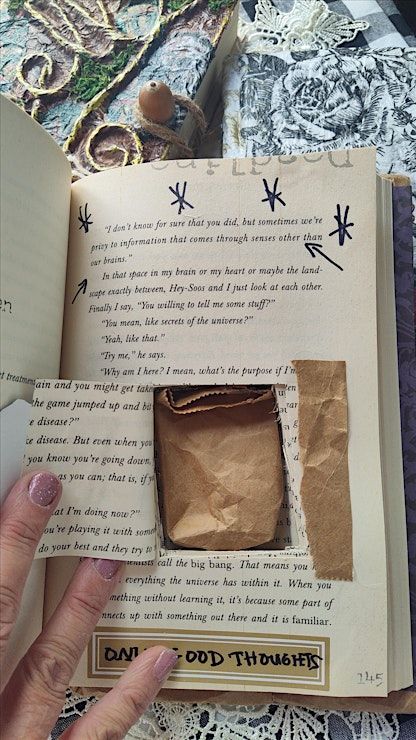 "I don't know for sure that you did, but sometimes we're
privy to information that comes through senses other than
our brains."
In that space in my brain or my heart or maybe the land-
scape exactly between, Hey-Soos and I just look at each other.
Finally I say, "You willing to tell me some stuff?"
"You mean, like secrets of the universe?"
"Yeah, like that."
"Try me," he says.
"Why am I here? I mean, what's the purpose if I'm
and you might get take
the game jumped up and
disease?"
disease. But even when you
you know you're going down,
as you can; that is, if
I'm doing now?"
playing it with some
do your best and they try to
call the big bang. That means you
everything the universe has within it. When you
without learning it, it's because some part of
up with something out there and it is familiar.
THOUGHTS
145